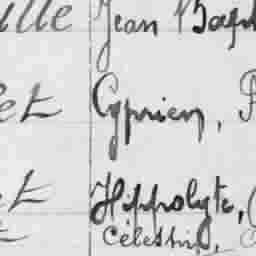 ille Jean Bapt
et Cyprien, P
t Hippolyte, (
t Célestin, C